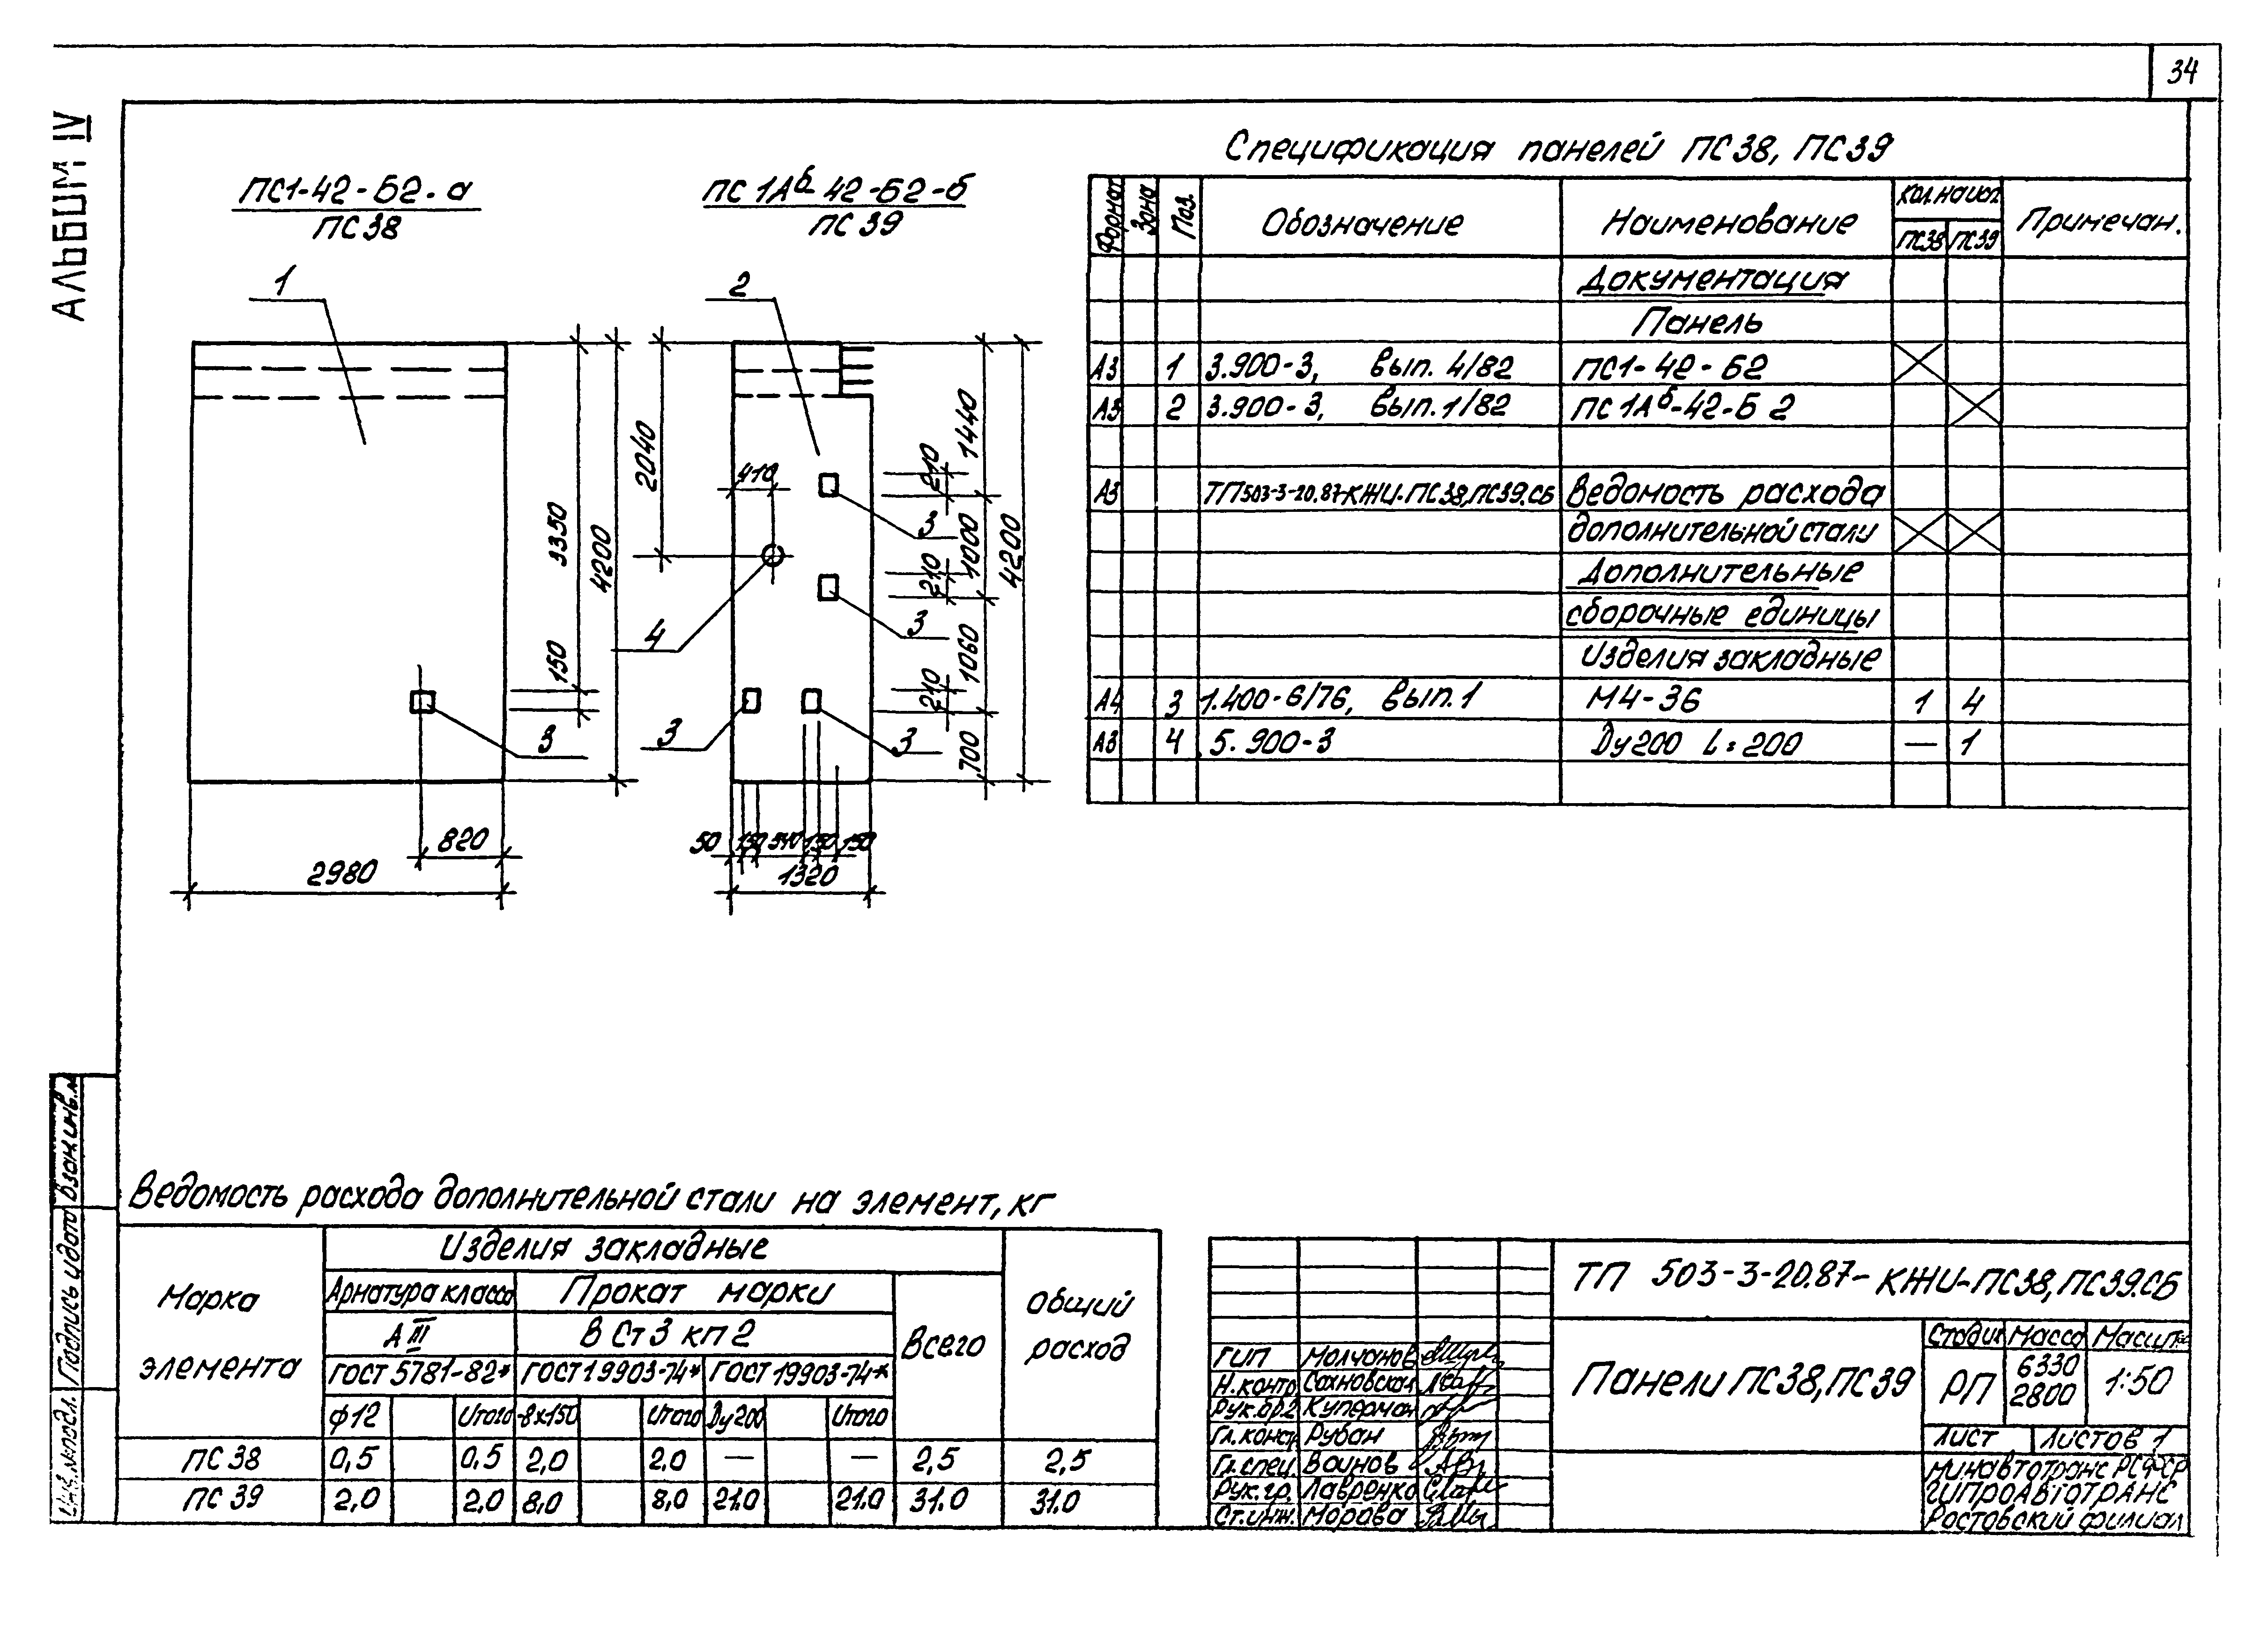 34
Альбом IV
ПС1-42-Б2-а
ПС 38
1
3350
4200
150
3
820
2980
ПС 1Аб 42-Б2-б
ПС 39
2
2040
410
1440
210
3
1000
4200
210
3
4
1060
210
3
3
700
50 150 540 150 150
1320
Спецификация панелей ПС38, ПС39
Формат Зона Поз. Обозначение Наименование Кол. на исп. Примечан.
ПС38 ПС39
Документация
Панель
А3 1 3.900-3, вып. 4/82 ПС1-42-Б2
А3 2 3.900-3, вып. 1/82 ПС 1Аб-42-Б 2
А3 ТП503-3-20.87-КЖИ-ПС38,ПС39.СБ Ведомость расхода
дополнительной стали
Дополнительные
сборочные единицы
Изделия закладные
А4 3 1.400-6/76, вып.1 М4-36 1 4
А3 4 5.900-3 Ду200 L=200 — 1
Ведомость расхода дополнительной стали на элемент, кг
Марка элемента Изделия закладные Общий расход
Арматура класса Прокат марки Всего
А III В Ст3 кп 2
ГОСТ 5781-82* ГОСТ19903-74* ГОСТ 19903-74*
ф12 Итого -8х150 Итого Ду200 Итого
ПС 38 0,5 0,5 2,0 2,0 — — 2,5 2,5
ПС 39 2,0 2,0 8,0 8,0 21.0 21.0 31.0 31.0
Взам.инв.№
Подпись и дата
Инв.№подл.
ТП 503-3-20.87-КЖИ-ПС38,ПС39.СБ
ГИП Молчанов
Н.контр Сохновская
Рук.бр.2 Куперман
Гл.конст Рубан
Гл.спец. Воинов
Рук.гр. Лавренко
Ст.инж. Морава
Панели ПС38,ПС39
Стадия Масса Масштаб
РП 6330 2800 1:50
Лист Листов 1
Минавтотранс РСФСР
ГИПРОАВТОТРАНС
Ростовский филиал